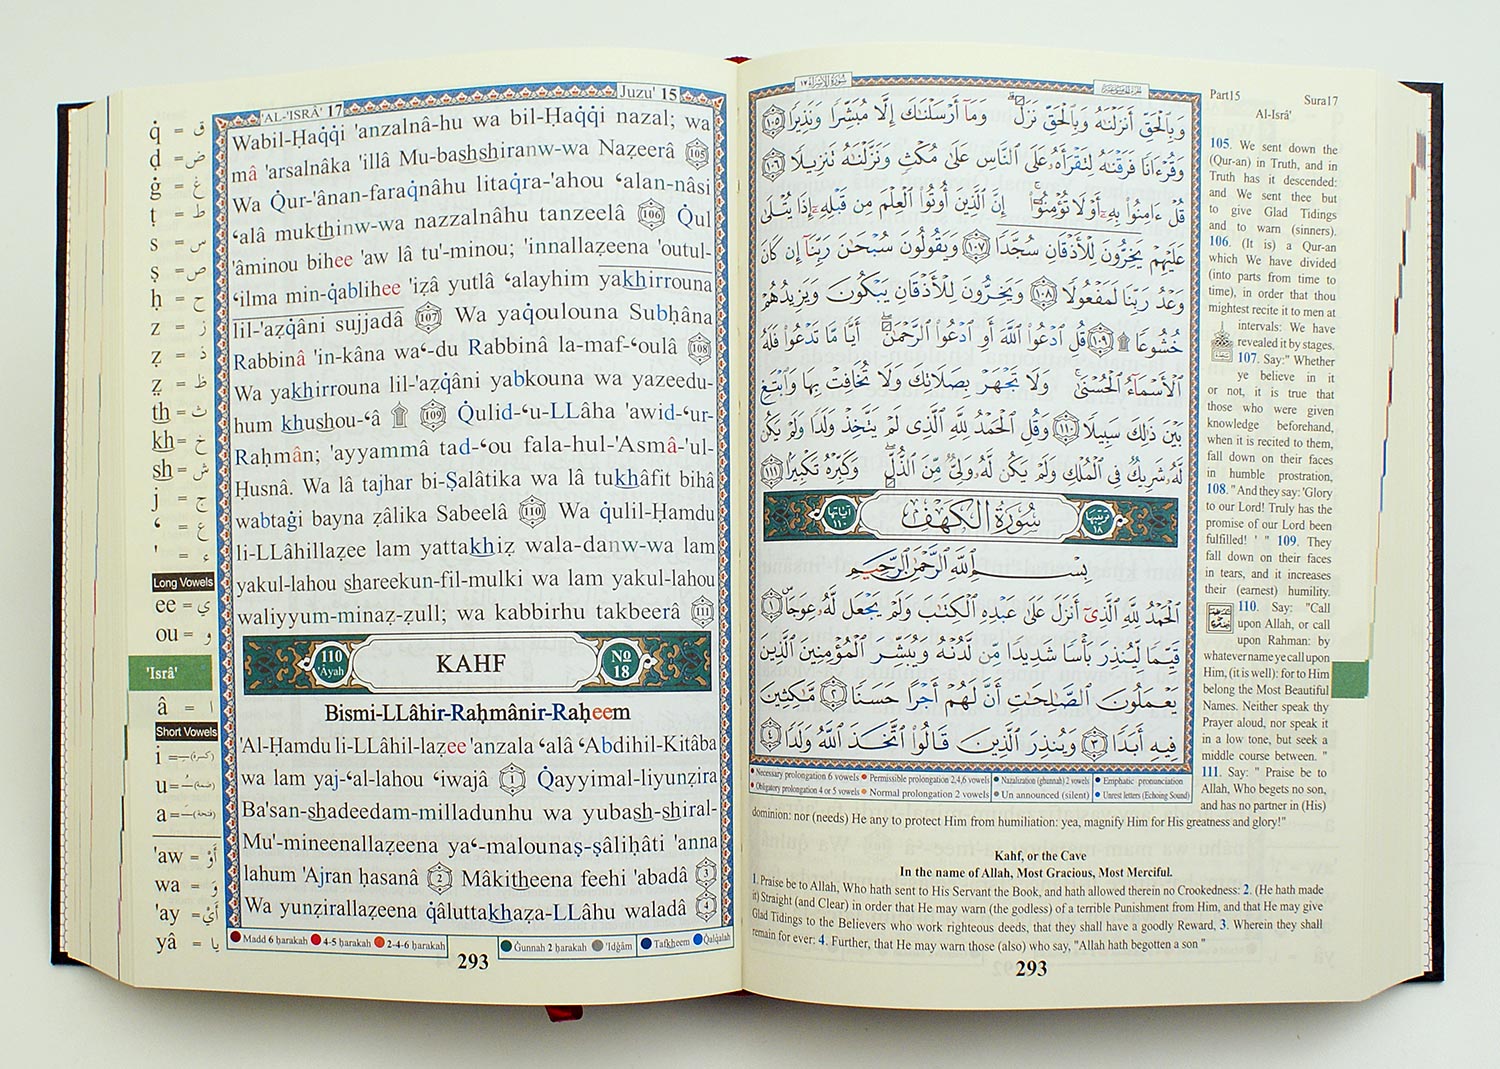 'AL-'ISRÂ' 17
Juzu' 15
Wabil-Ḥaq̇q̇i 'anzalnâ-hu wa bil-Ḥaq̇q̇i nazal; wa
mâ 'arsalnâka 'illâ Mu-bashshiranw-wa Naẓeerâ 105
Wa Q̇ur-'ânan-faraq̇nâhu litaq̇ra-'ahou ‘alan-nâsi
‘alâ mukthinw-wa nazzalnâhu tanzeelâ 106 Q̇ul
'âminou bihee 'aw lâ tu'-minou; 'innallaẓeena 'outul-
‘ilma min-q̇ablihee 'iẓâ yutlâ ‘alayhim yakhirrouna
lil-'aẓq̇âni sujjadâ 107 Wa yaq̇oulouna Subḥâna
Rabbinâ 'in-kâna wa‘-du Rabbinâ la-maf-‘oulâ 108
Wa yakhirrouna lil-'aẓq̇âni yabkouna wa yazeedu-
hum khushou-‘â ۩ 109 Q̇ulid-‘u-LLâha 'awid-‘ur-
Raḥmân; 'ayyammâ tad-‘ou fala-hul-'Asmâ-'ul-
Ḥusnâ. Wa lâ tajhar bi-Ṣalâtika wa lâ tukhâfit bihâ
wabtaġi bayna ẓâlika Sabeelâ 110 Wa q̇ulil-Ḥamdu
li-LLâhillaẓee lam yattakhiẓ wala-danw-wa lam
yakul-lahou shareekun-fil-mulki wa lam yakul-lahou
waliyyum-minaẓ-ẓull; wa kabbirhu takbeerâ 111
110 'Ayah
KAHF
No 18
Bismi-LLâhir-Raḥmânir-Raḥeem
'Al-Ḥamdu li-LLâhil-laẓee 'anzala ‘alâ ‘Abdihil-Kitâba
wa lam yaj-‘al-lahou ‘iwajâ 1 Q̇ayyimal-liyunẓira
Ba'san-shadeedam-milladunhu wa yubash-shiral-
Mu'-mineenallaẓeena ya‘-malounaṣ-ṣâliḥâti 'anna
lahum 'Ajran ḥasanâ 2 Mâkitheena feehi 'abadâ 3
Wa yunẓirallaẓeena q̇âluttakhaẓa-LLâhu waladâ 4
Madd 6 ḥarakah 4-5 ḥarakah 2-4-6 ḥarakah
Ġunnah 2 ḥarakah 'Idġâm Tafkheem Q̇alq̇alah
293
q̇ = ق
ḍ = ض
ġ = غ
ṭ = ط
s = س
ṣ = ص
ḥ = ح
z = ز
ẓ = ذ
ẓ̤ = ظ
th = ث
kh = خ
sh = ش
j = ج
‘ = ع
' = ء
Long Vowels
ee = ي
ou = و
'Isrâ'
â = ا
Short Vowels
i = (كسرة)
u = (ضمة)
a = (فتحة)
'aw = أَوْ
wa = وَ
'ay = أَيْ
yâ = يا
سُورَةُ الإِسْرَاءِ ١٧
وَبِالْحَقِّ أَنزَلْنَاهُ وَبِالْحَقِّ نَزَلَ وَمَا أَرْسَلْنَاكَ إِلَّا مُبَشِّرًا وَنَذِيرًا ١٠٥
وَقُرْءَانًا فَرَقْنَاهُ لِتَقْرَأَهُ عَلَى النَّاسِ عَلَى مُكْثٍ وَنَزَّلْنَاهُ تَنزِيلًا ١٠٦
قُلْ ءَامِنُوا بِهِ أَوْ لَا تُؤْمِنُوا إِنَّ الَّذِينَ أُوتُوا الْعِلْمَ مِن قَبْلِهِ إِذَا يُتْلَى
عَلَيْهِمْ يَخِرُّونَ لِلْأَذْقَانِ سُجَّدًا ١٠٧ وَيَقُولُونَ سُبْحَانَ رَبِّنَا إِن كَانَ
وَعْدُ رَبِّنَا لَمَفْعُولًا ١٠٨ وَيَخِرُّونَ لِلْأَذْقَانِ يَبْكُونَ وَيَزِيدُهُمْ
خُشُوعًا ۩ ١٠٩ قُلِ ادْعُوا اللَّهَ أَوِ ادْعُوا الرَّحْمَٰنَ أَيًّا مَّا تَدْعُوا فَلَهُ
الْأَسْمَاءُ الْحُسْنَى وَلَا تَجْهَرْ بِصَلَاتِكَ وَلَا تُخَافِتْ بِهَا وَابْتَغِ
بَيْنَ ذَلِكَ سَبِيلًا ١١٠ وَقُلِ الْحَمْدُ لِلَّهِ الَّذِي لَمْ يَتَّخِذْ وَلَدًا وَلَمْ يَكُن
لَّهُ شَرِيكٌ فِي الْمُلْكِ وَلَمْ يَكُن لَّهُ وَلِيٌّ مِّنَ الذُّلِّ وَكَبِّرْهُ تَكْبِيرًا ١١١
ترتيبها ١٨
سُورَةُ الْكَهْفِ
آياتها ١١٠
بِسْمِ اللَّهِ الرَّحْمَٰنِ الرَّحِيمِ
الْحَمْدُ لِلَّهِ الَّذِي أَنزَلَ عَلَى عَبْدِهِ الْكِتَابَ وَلَمْ يَجْعَل لَّهُ عِوَجَا ١
قَيِّمًا لِّيُنذِرَ بَأْسًا شَدِيدًا مِّن لَّدُنْهُ وَيُبَشِّرَ الْمُؤْمِنِينَ الَّذِينَ
يَعْمَلُونَ الصَّالِحَاتِ أَنَّ لَهُمْ أَجْرًا حَسَنًا ٢ مَّاكِثِينَ
فِيهِ أَبَدًا ٣ وَيُنذِرَ الَّذِينَ قَالُوا اتَّخَذَ اللَّهُ وَلَدًا ٤
Necessary prolongation 6 vowels Permissible prolongation 2,4,6 vowels Nazalization (ghunnah) 2 vowels Emphatic pronunciation
Obligatory prolongation 4 or 5 vowels Normal prolongation 2 vowels Un announced (silent) Unrest letters (Echoing Sound)
Part15 Sura17
Al-Isrâ'
105. We sent down the
(Qur-an) in Truth, and in
Truth has it descended:
and We sent thee but
to give Glad Tidings
and to warn (sinners).
106. (It is) a Qur-an
which We have divided
(into parts from time to
time), in order that thou
mightest recite it to men at
intervals: We have
revealed it by stages.
107. Say:" Whether
ye believe in it
or not, it is true that
those who were given
knowledge beforehand,
when it is recited to them,
fall down on their faces
in humble prostration,
108. "And they say: 'Glory
to our Lord! Truly has the
promise of our Lord been
fulfilled! ' " 109. They
fall down on their faces
in tears, and it increases
their (earnest) humility.
110. Say: "Call
upon Allah, or call
upon Rahman: by
whatever name ye call upon
Him, (it is well): for to Him
belong the Most Beautiful
Names. Neither speak thy
Prayer aloud, nor speak it
in a low tone, but seek a
middle course between. "
111. Say: " Praise be to
Allah, Who begets no son,
and has no partner in (His)
dominion: nor (needs) He any to protect Him from humiliation: yea, magnify Him for His greatness and glory!"
Kahf, or the Cave
In the name of Allah, Most Gracious, Most Merciful.
1. Praise be to Allah, Who hath sent to His Servant the Book, and hath allowed therein no Crookedness: 2. (He hath made
it) Straight (and Clear) in order that He may warn (the godless) of a terrible Punishment from Him, and that He may give
Glad Tidings to the Believers who work righteous deeds, that they shall have a goodly Reward, 3. Wherein they shall
remain for ever: 4. Further, that He may warn those (also) who say, "Allah hath begotten a son "
293